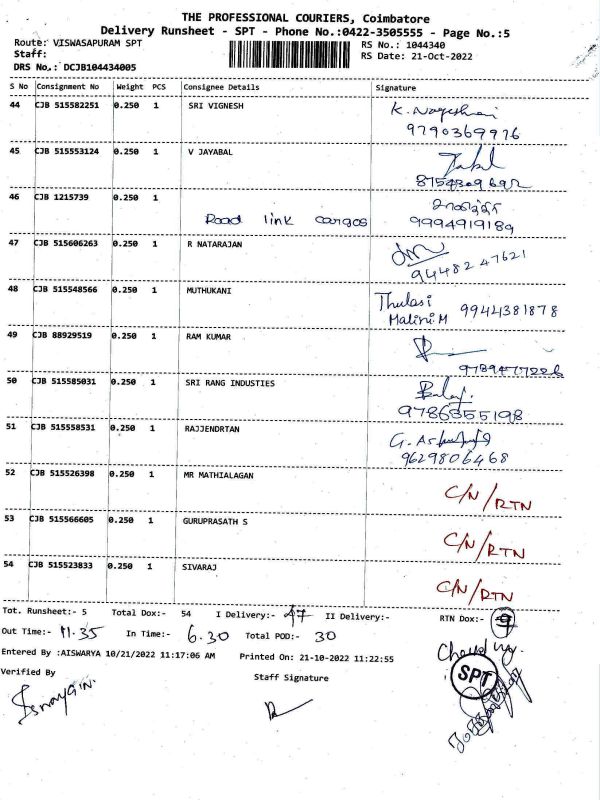 THE PROFESSIONAL COURIERS, Coimbatore
Delivery Runsheet - SPT - Phone No.:0422-3505555 - Page No.:5
Route: VISWASAPURAM SPT RS No.: 1044340
Staff: RS Date: 21-Oct-2022
DRS No.: DCJB104434005
S No Consignment No Weight PCS Consignee Details Signature
44 CJB 515582251 0.250 1 SRI VIGNESH K. Nageshwari
9790369976
45 CJB 515553124 0.250 1 V JAYABAL
8754309692
46 CJB 1215739 0.250 1
Road link cargos 9994919189
47 CJB 515606263 0.250 1 R NATARAJAN
94482 47621
48 CJB 515548566 0.250 1 MUTHUKANI Thulasi 9944381878
Malini M
49 CJB 88929519 0.250 1 RAM KUMAR
50 CJB 515585031 0.250 1 SRI RANG INDUSTIES Balaji
9786355198
51 CJB 515558531 0.250 1 RAJJENDRTAN
9629806468
52 CJB 515526398 0.250 1 MR MATHIALAGAN C/N/RTN
53 CJB 515566605 0.250 1 GURUPRASATH S C/N/RTN
54 CJB 515523833 0.250 1 SIVARAJ C/N/RTN
Tot. Runsheet:- 5 Total Dox:- 54 I Delivery:- 47 II Delivery:- RTN Dox:- 7
Out Time:- 11.35 In Time:- 6.30 Total POD:- 30
Entered By :AISWARYA 10/21/2022 11:17:06 AM Printed On: 21-10-2022 11:22:55
Verified By Staff Signature
SPT